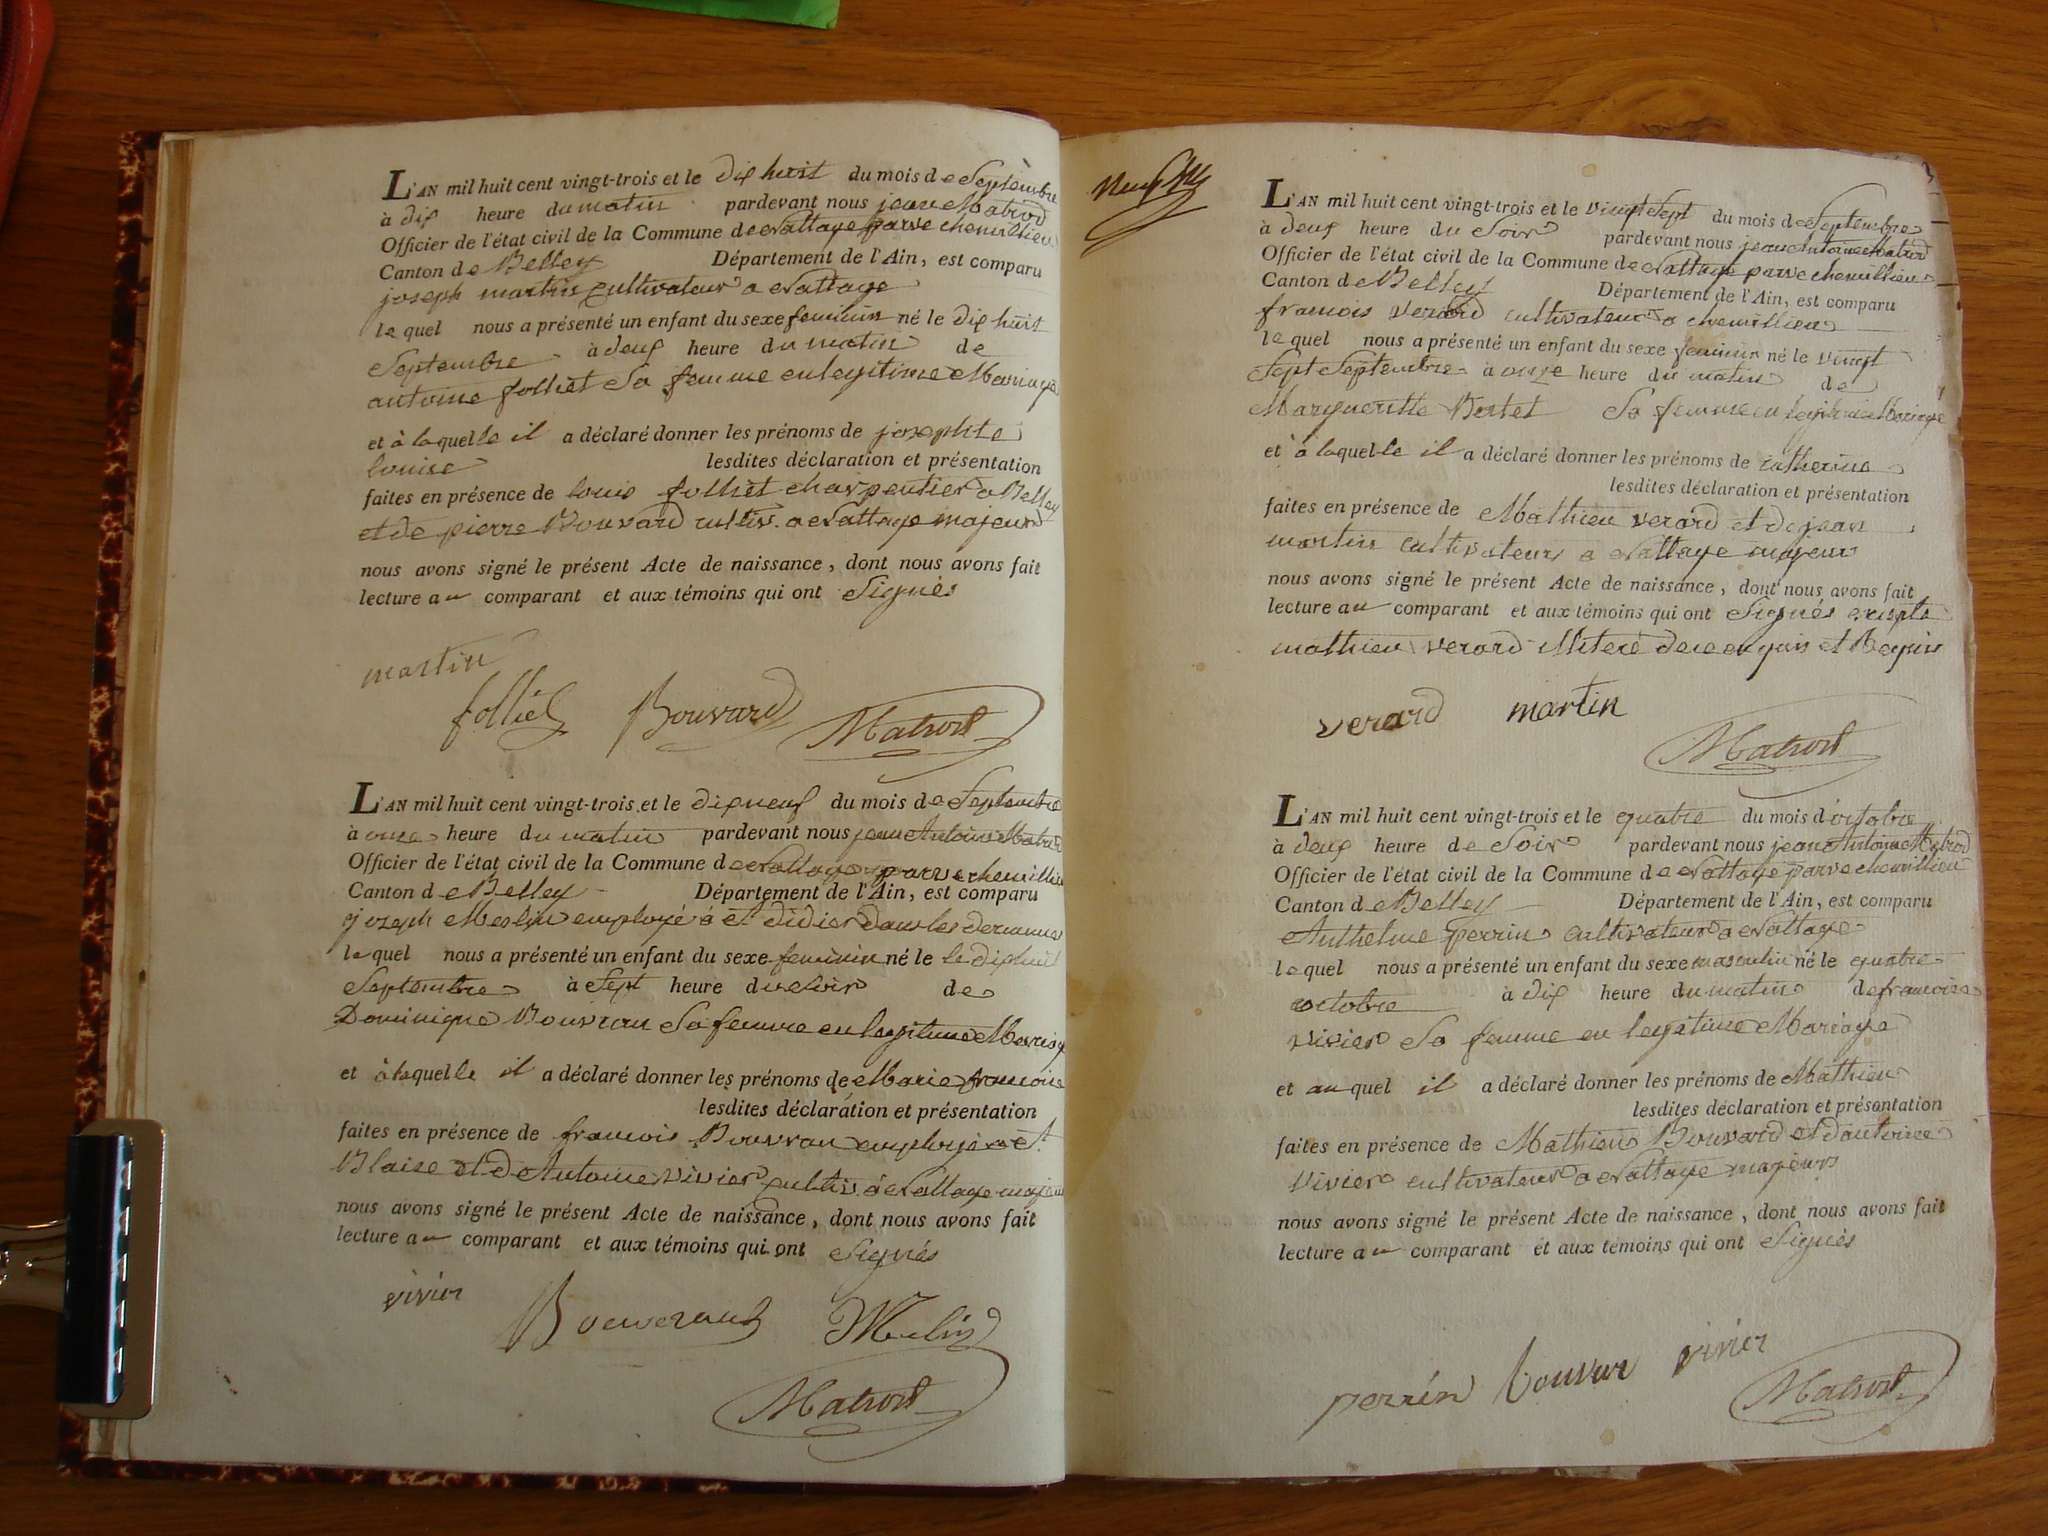 L'AN mil huit cent vingt-trois et le dix huit du mois de Septembre
à dix heure du matin pardevant nous jean Matrod
Officier de l'état civil de la Commune de Nattage parve chemillieu
Canton de Belley Département de l'Ain, est comparu
joseph martin cultivateur a Nattage
le quel nous a présenté un enfant du sexe feminin né le dix huit
Septembre à deux heure du matin de
antoine folliet Sa femme en legitime Mariage
et à laquelle il a déclaré donner les prénoms de josephte
louise lesdites déclaration et présentation
faites en présence de louis folliet charpentier a Belley
et de pierre Bouvard cultiv. a Nattage majeurs
nous avons signé le présent Acte de naissance, dont nous avons fait
lecture au comparant et aux témoins qui ont Signés
martin
folliet Bouvard Matrod
L'AN mil huit cent vingt-trois et le dix neuf du mois de Septembre
à onze heure du matin pardevant nous jean Antoine Matrod
Officier de l'état civil de la Commune de Nattage parve chemillieu
Canton de Belley Département de l'Ain, est comparu
joseph employé à St didier dans les
le quel nous a présenté un enfant du sexe feminin né le le dix huit
Septembre à Sept heure du Soir de
Dominique Bouvran Sa femme en legitime Mariage
et à laquelle il a déclaré donner les prénoms de Marie francoise
lesdites déclaration et présentation
faites en présence de francois Bouvran employé a St
Blaise et d'Antoine vivier cultiv. à Nattage majeurs
nous avons signé le présent Acte de naissance, dont nous avons fait
lecture au comparant et aux témoins qui ont Signés
vivier
Matrod
L'AN mil huit cent vingt-trois et le vingt Sept du mois de Septembre
à deux heure du Soir pardevant nous jean Antoine Matrod
Officier de l'état civil de la Commune de Nattage parve chemillieu
Canton de Belley Département de l'Ain, est comparu
francois verard cultivateur a chemillieu
le quel nous a présenté un enfant du sexe feminin né le vingt
Sept Septembre à onze heure du matin de
Margueritte Bertet Sa femme en legitime Mariage
et à laquelle il a déclaré donner les prénoms de catherine
lesdites déclaration et présentation
faites en présence de Mathieu verard et de jean
martin cultivateurs a Nattage majeurs
nous avons signé le présent Acte de naissance, dont nous avons fait
lecture au comparant et aux témoins qui ont Signés excepte
mathieu verard illiteré de ce enquis et Requis
verard martin
Matrod
L'AN mil huit cent vingt-trois et le quatre du mois d'octobre
à deux heure de Soir pardevant nous jean Antoine Matrod
Officier de l'état civil de la Commune de Nattage parve chemillieu
Canton de Belley Département de l'Ain, est comparu
Anthelme perrin cultivateur a Nattage
le quel nous a présenté un enfant du sexe masculin né le quatre
octobre à dix heure du matin de francoise
vivier Sa femme en legitime Mariage
et au quel il a déclaré donner les prénoms de Mathieu
lesdites déclaration et présentation
faites en présence de Mathieu Bouvard et d'antoine
vivier cultivateurs a Nattage majeurs
nous avons signé le présent Acte de naissance, dont nous avons fait
lecture au comparant et aux témoins qui ont Signés
perrin bouvar vivier
Matrod